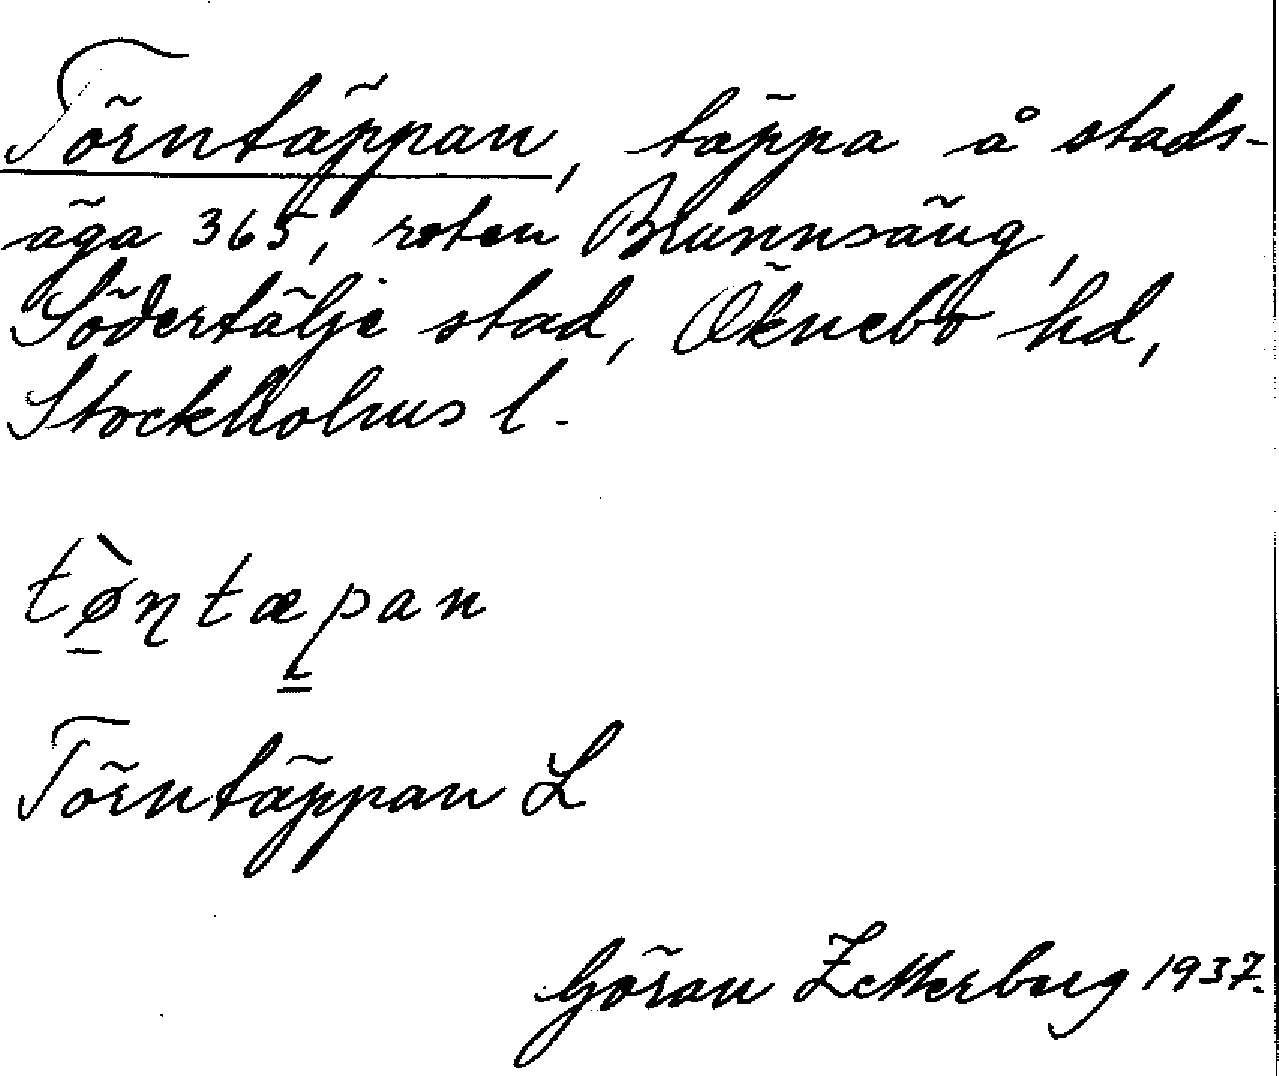 Törntäppan, täppa å stads-
äga 365, roten Blannsäng,
Södertälje stad, Öknebo hd,
Stockholms l.
tø̀ntæpan
Törntäppan L
Göran Zetterberg 1937.